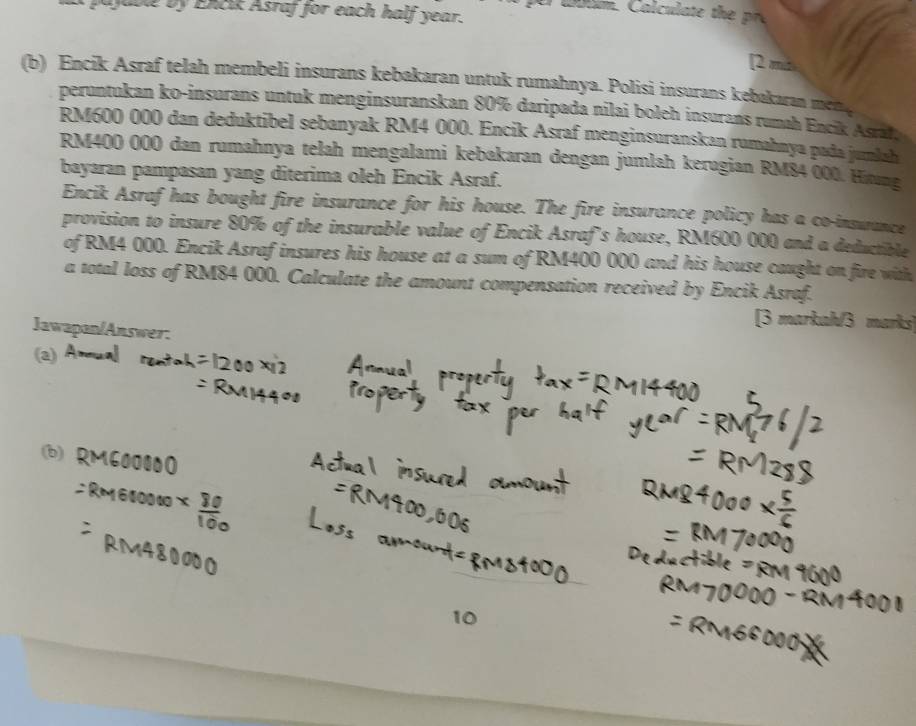 by Encik Asraf for each half year.
Calculate the
[2
(b) Encik Asraf telah membeli insurans kebakaran untuk rumahnya. Polisi insurans kebakaran
peruntukan ko-insurans untuk menginsuranskan 80% daripada nilai boleh insurans rumah Encik Asraf,
RM600 000 dan deduktibel sebanyak RM4 000. Encik Asraf menginsuranskan rumahnya pada jumlah
RM400 000 dan rumahnya telah mengalami kebakaran dengan jumlah kerugian RM84 000. Hitung
bayaran pampasan yang diterima oleh Encik Asraf.
Encik Asraf has bought fire insurance for his house. The fire insurance policy has a co-insurance
provision to insure 80% of the insurable value of Encik Asraf's house, RM600 000 and a deductible
of RM4 000. Encik Asraf insures his house at a sum of RM400 000 and his house caught on fire with
a total loss of RM84 000. Calculate the amount compensation received by Encik Asraf.
[3 markah/3 marks]
Jawapan/Answer:
(a) Annual = 1200 × 12
= RM14400
Annual property tax = RM14400
Property tax per half year = RM576/2
= RM288
(b) RM600000
= RM600000 × 80/100
= RM480000
Actual insured amount
= RM400,000
Loss amount = RM84000
RM84000 × 5/6
= RM70000
Deductible = RM4000
RM70000 - RM4000
= RM66000
10